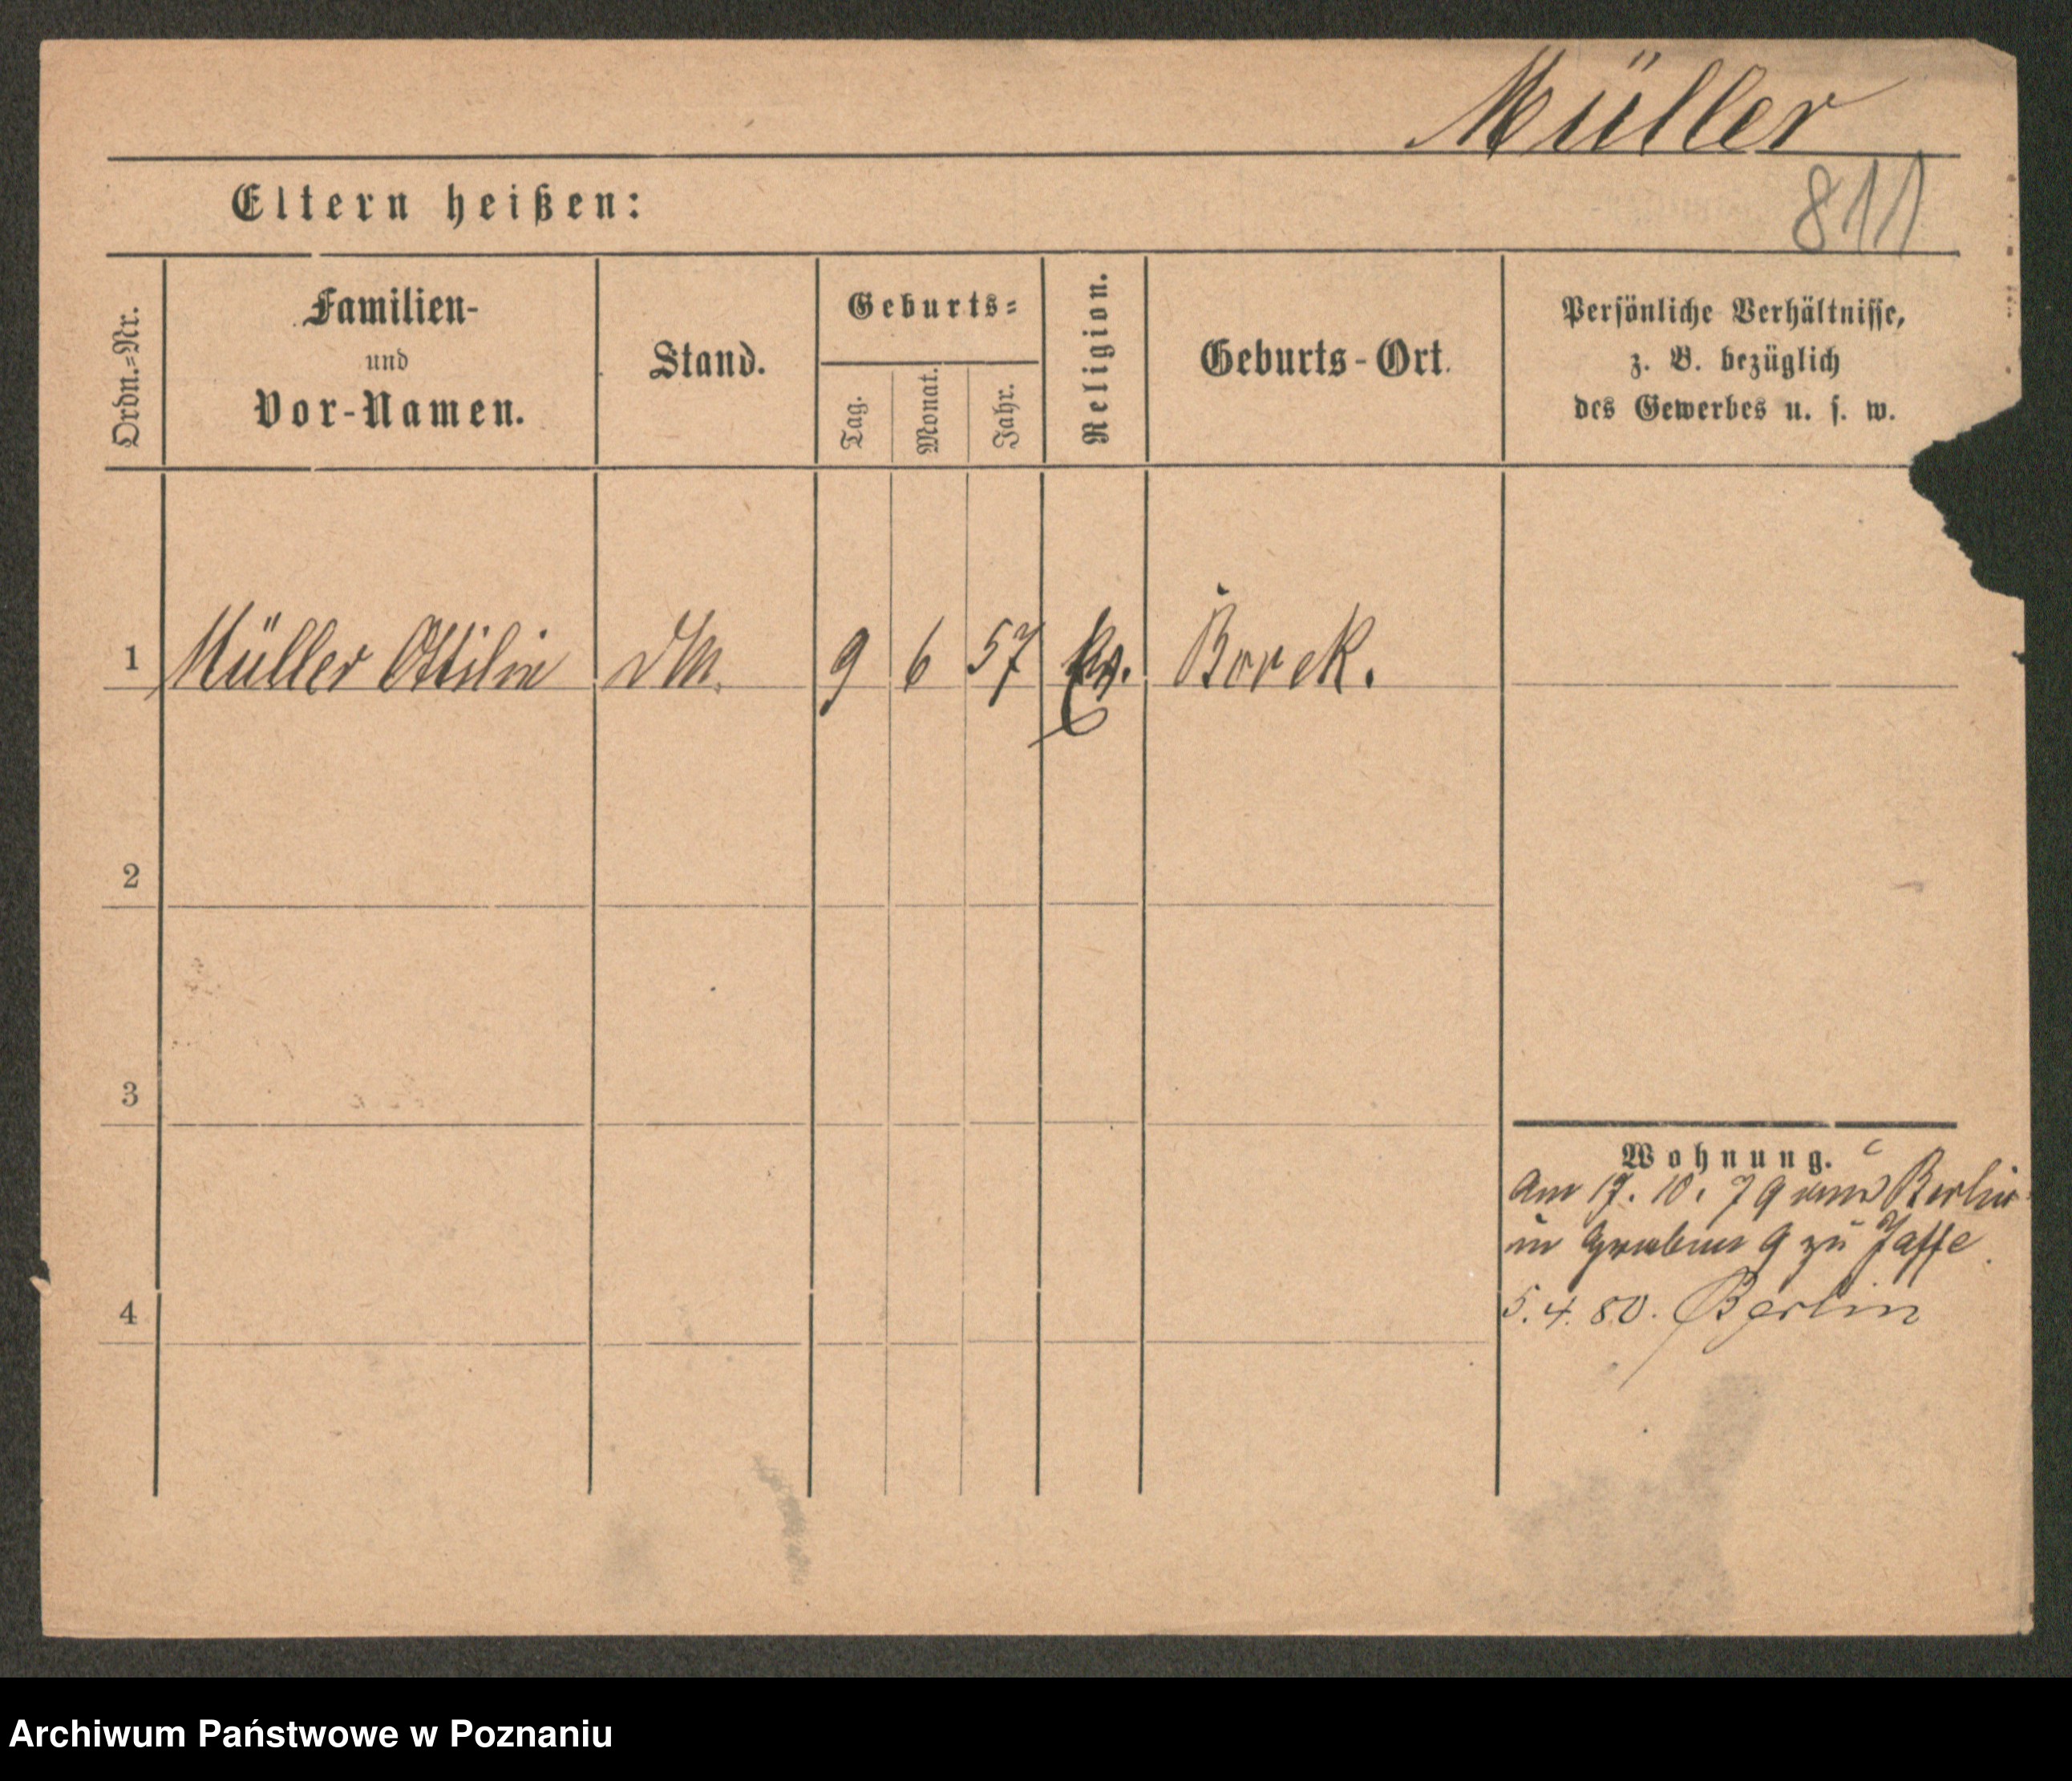 Müller
811
Eltern heißen:
Ordn.=Nr.
Familien-
und
Vor-Namen.
Stand.
Geburts=
Tag.
Monat.
Jahr.
Religion.
Geburts-Ort.
Persönliche Verhältnisse,
z. B. bezüglich
des Gewerbes u. s. w.
1 Müller Ottilie DM. 9 6 57 Ev. Borek.
2
3
4
Wohnung.
Am 17. 10. 79 von Berlin
in Graben 9 zu Jaffe
5. 4. 80. Berlin
Archiwum Państwowe w Poznaniu